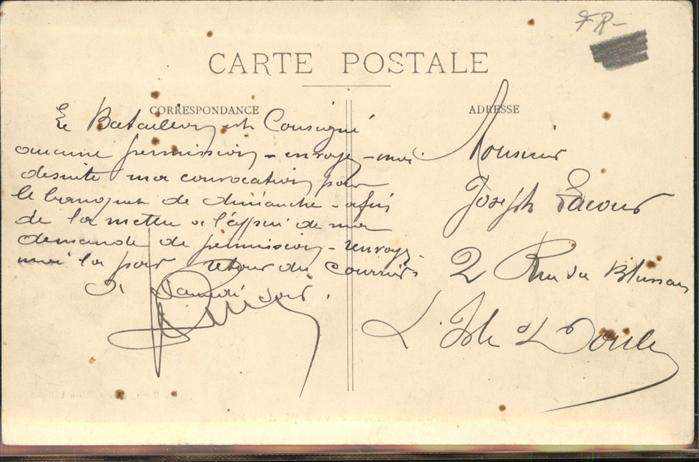 FR-
CARTE POSTALE
CORRESPONDANCE
Le Bataillon est Consigné
aucune permission - envoyez-moi
desuite ma convocation pour
le banquet de dimanche - afin
de la mettre a l'appui de ma
demande de permission - envoyez-
moi la par retour du courrier
Samedi soir.
ADRESSE
Monsieur
Joseph Lacour
2 Rue du
L'Isle s/ Doubs